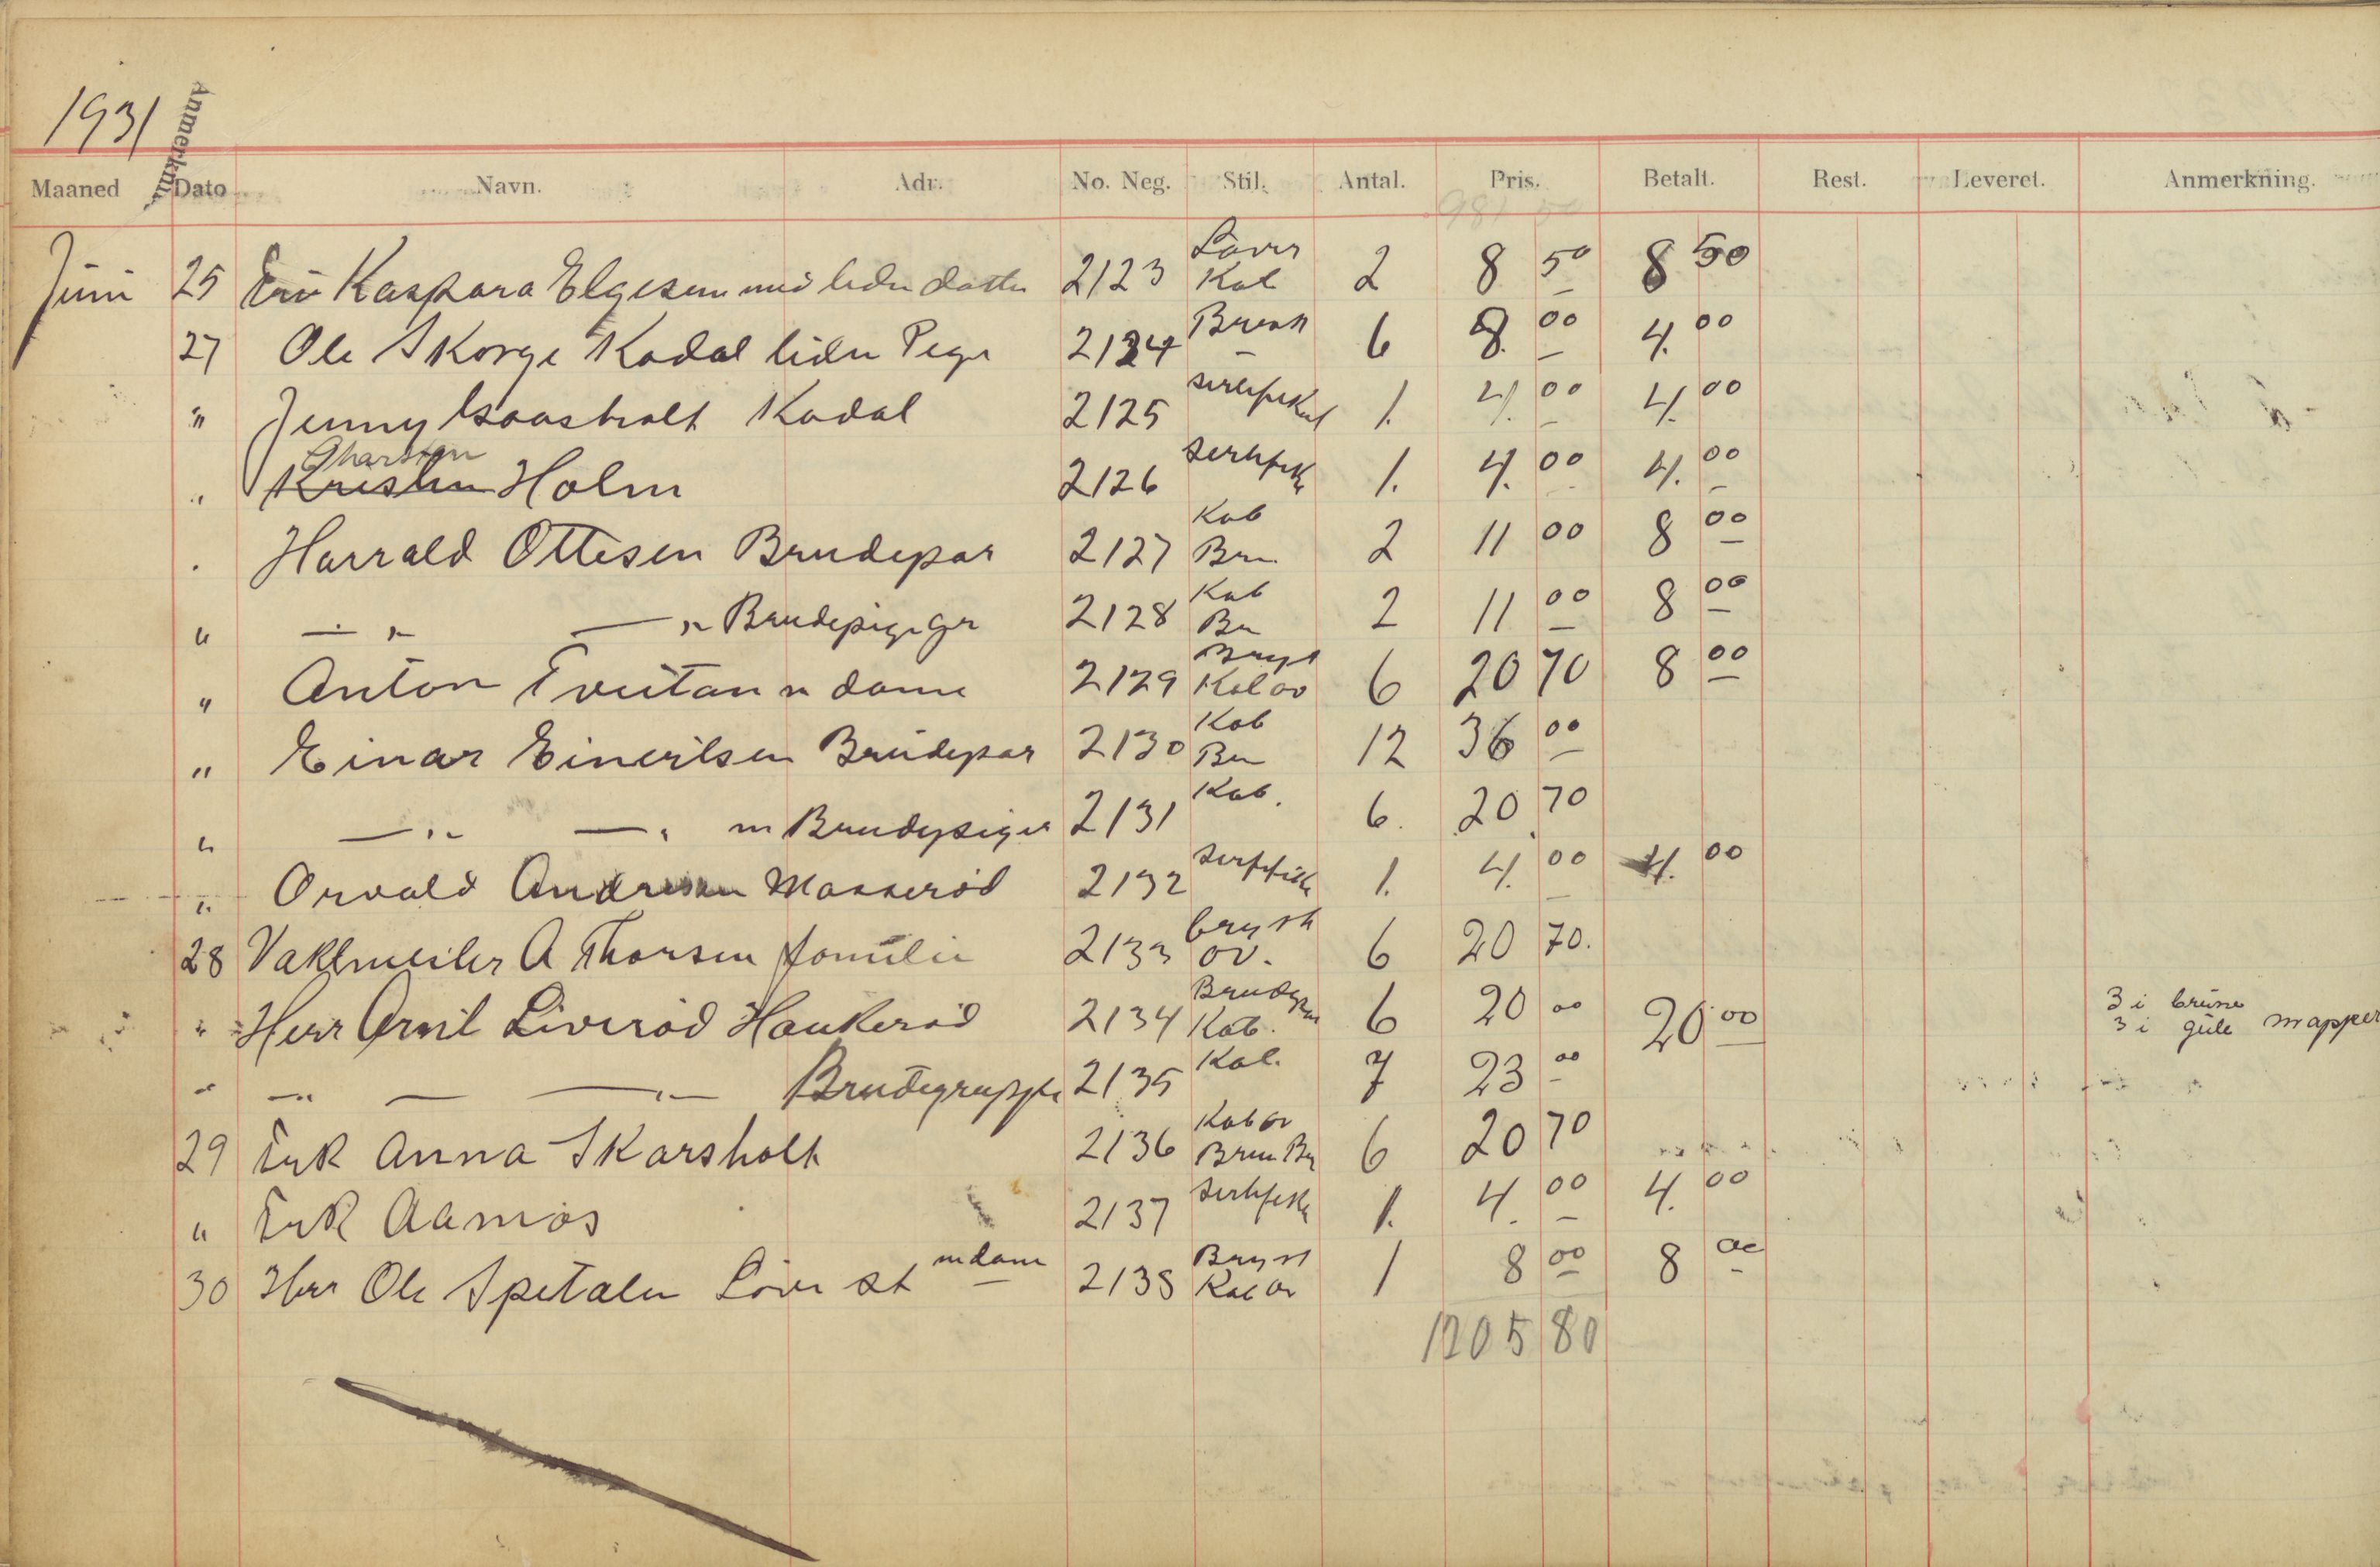 1931 Anmerkni
Maaned Dato Navn. Adr. No. Neg. Stil. Antal. Pris. Betalt. Rest. Leveret. Anmerkning.
Juni 25 Fru Kaspara Elgesem med liden datter 2123 Kab 2 8 50 8 50
27 Ole Skorge Kodal liden Pege 2124 Brevk 6 8. 00 4. 00
" Jenny Gaasholt Kodal 2125 sertifikat 1. 4. 00 4. 00
Tharsten
" Kristen Holm 2126 sertifik 1. 4. 00 4. 00
. Harrald Ottesen Brudepar 2127 Kab Bru 2 11 00 8 00
" — " — " Brudepige Gr 2128 Kab Bru 2 11 00 8 00
" Anton Tveitan m dame 2129 Bryst Kab ov 6 20 70 8 00
" Einar Einertsen Brudepar 2130 Kab Bru 12 36 00
" — " — " m Brudepiger 2131 Kab. 6. 20 70
" Orvald Andresen Masserød 2132 sertifik 1. 4. 00 4. 00
28 Vaktmeiler A Thorsen familie 2133 bryst ov. 6 20 70.
" Herr Arvil Liverød Haukerød 2134 Brudepar Kab. 6 20 00 20 00 3 i brune
3 i gule mapper
" — " — — " — Brudegruppe 2135 Kab. 7 23 00
29 Frk Anna Skarsholt 2136 Kab ov Bru Br 6 20 70
" Frk Aamos 2137 sertifik 1. 4. 00 4. 00
30 Herr Ole Spetalen Løve st m dame 2138 Bryst Kab ov 1 8 00 8 00
1205 80